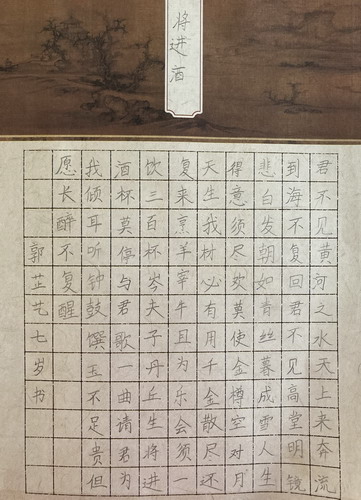 将进酒
君不见黄河之水天上来奔流
到海不复回君不见高堂明镜
悲白发朝如青丝暮成雪人生
得意须尽欢莫使金樽空对月
天生我材必有用千金散尽还
复来烹羊宰牛且为乐会须一
饮三百杯岑夫子丹丘生将进
酒杯莫停与君歌一曲请君为
我倾耳听钟鼓馔玉不足贵但
愿长醉不复醒
郭芷艺七岁书